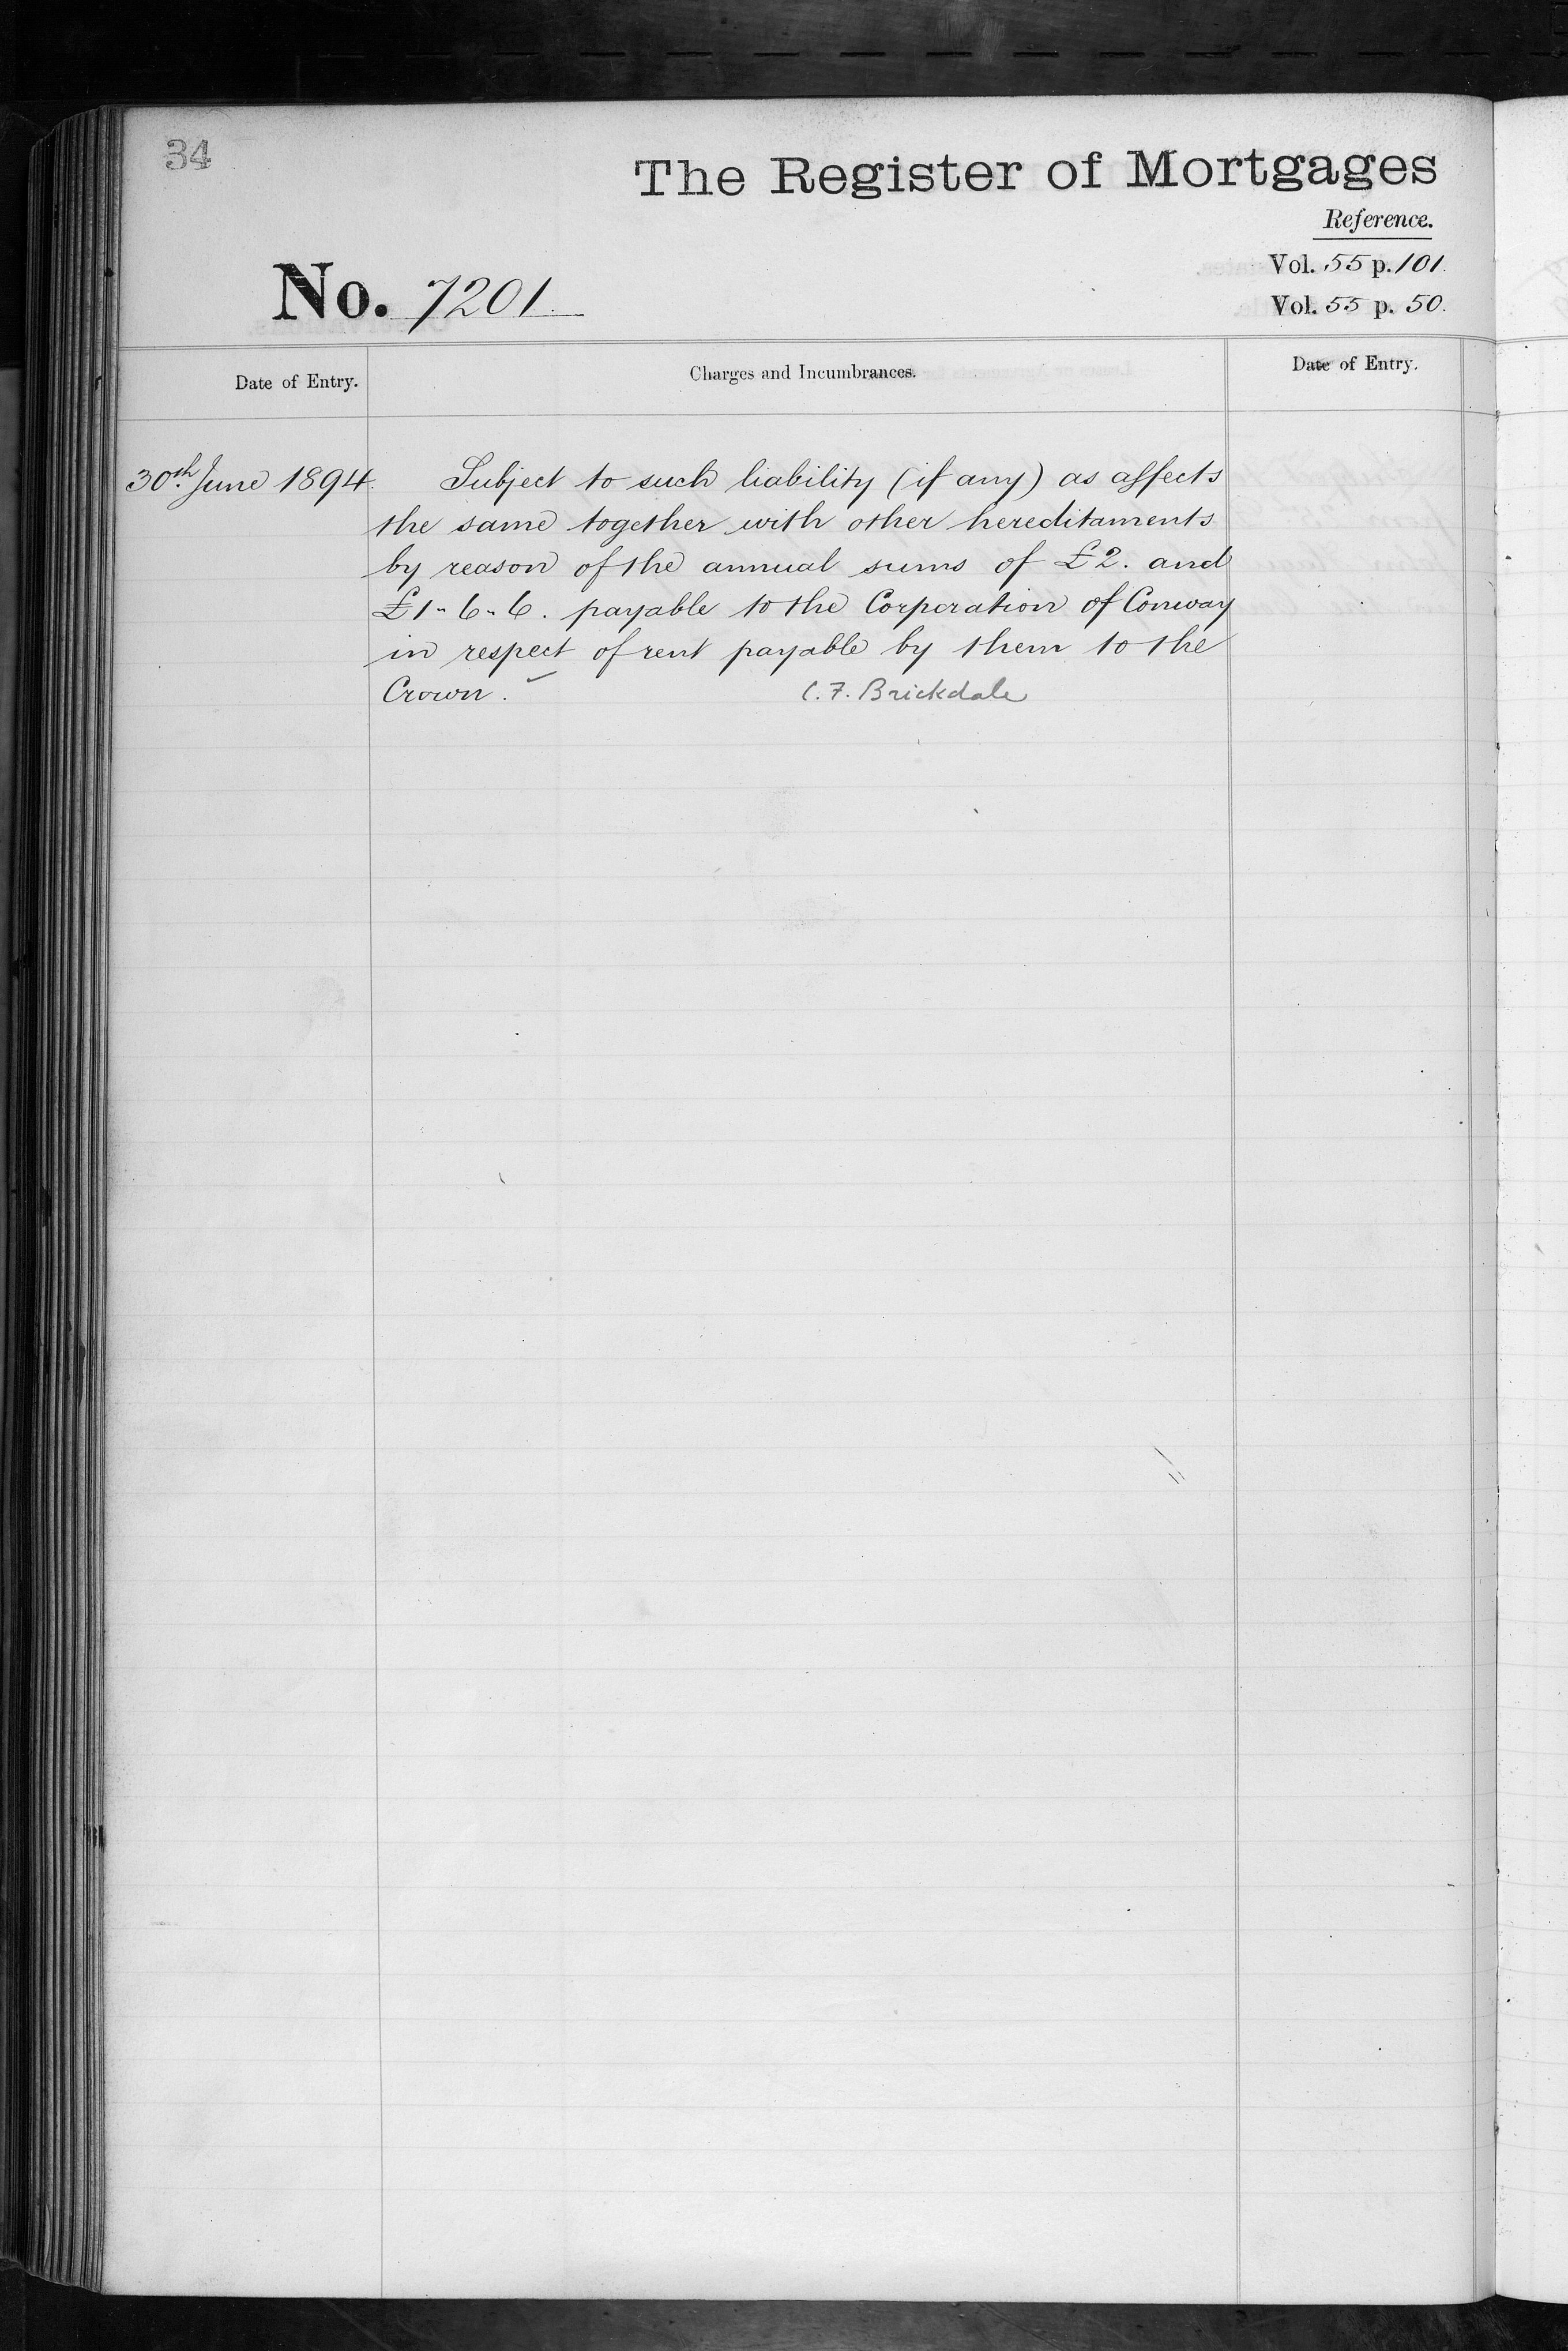 34
The Register of Mortgages
Reference.
Vol. 55 p. 101.
No. 7201.
Vol. 55 p. 50.
Date of Entry.
Charges and Incumbrances.
Date of Entry.
30th June 1894.
Subject to such liability (if any) as affects
the same together with other hereditaments
by reason of the annual sums of £2. and
£1-6-6. payable to the Corporation of Conway
in respect of rent payable by them to the
Crown.
C. F. Brickdale